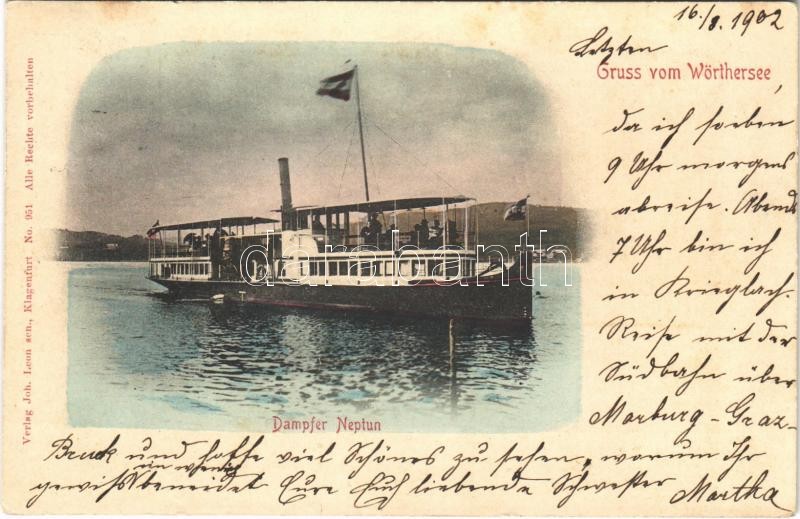 16./8. 1902
Letzten
Gruss vom Wörthersee,
da ich soeben
9 Uhr morgens
abreise. Abends
7 Uhr bin ich
in Krieglach.
Reise mit der
Südbahn über
Marburg-Graz-
Bruck und hoffe viel Schönes zu sehen, worum Ihr
ein wenig
gewiß beneidet Eure Euch liebende Schwester Martha
Dampfer Neptun
Verlag Joh. Leon sen., Klagenfurt. No. 951 Alle Rechte vorbehalten
darabanth.com